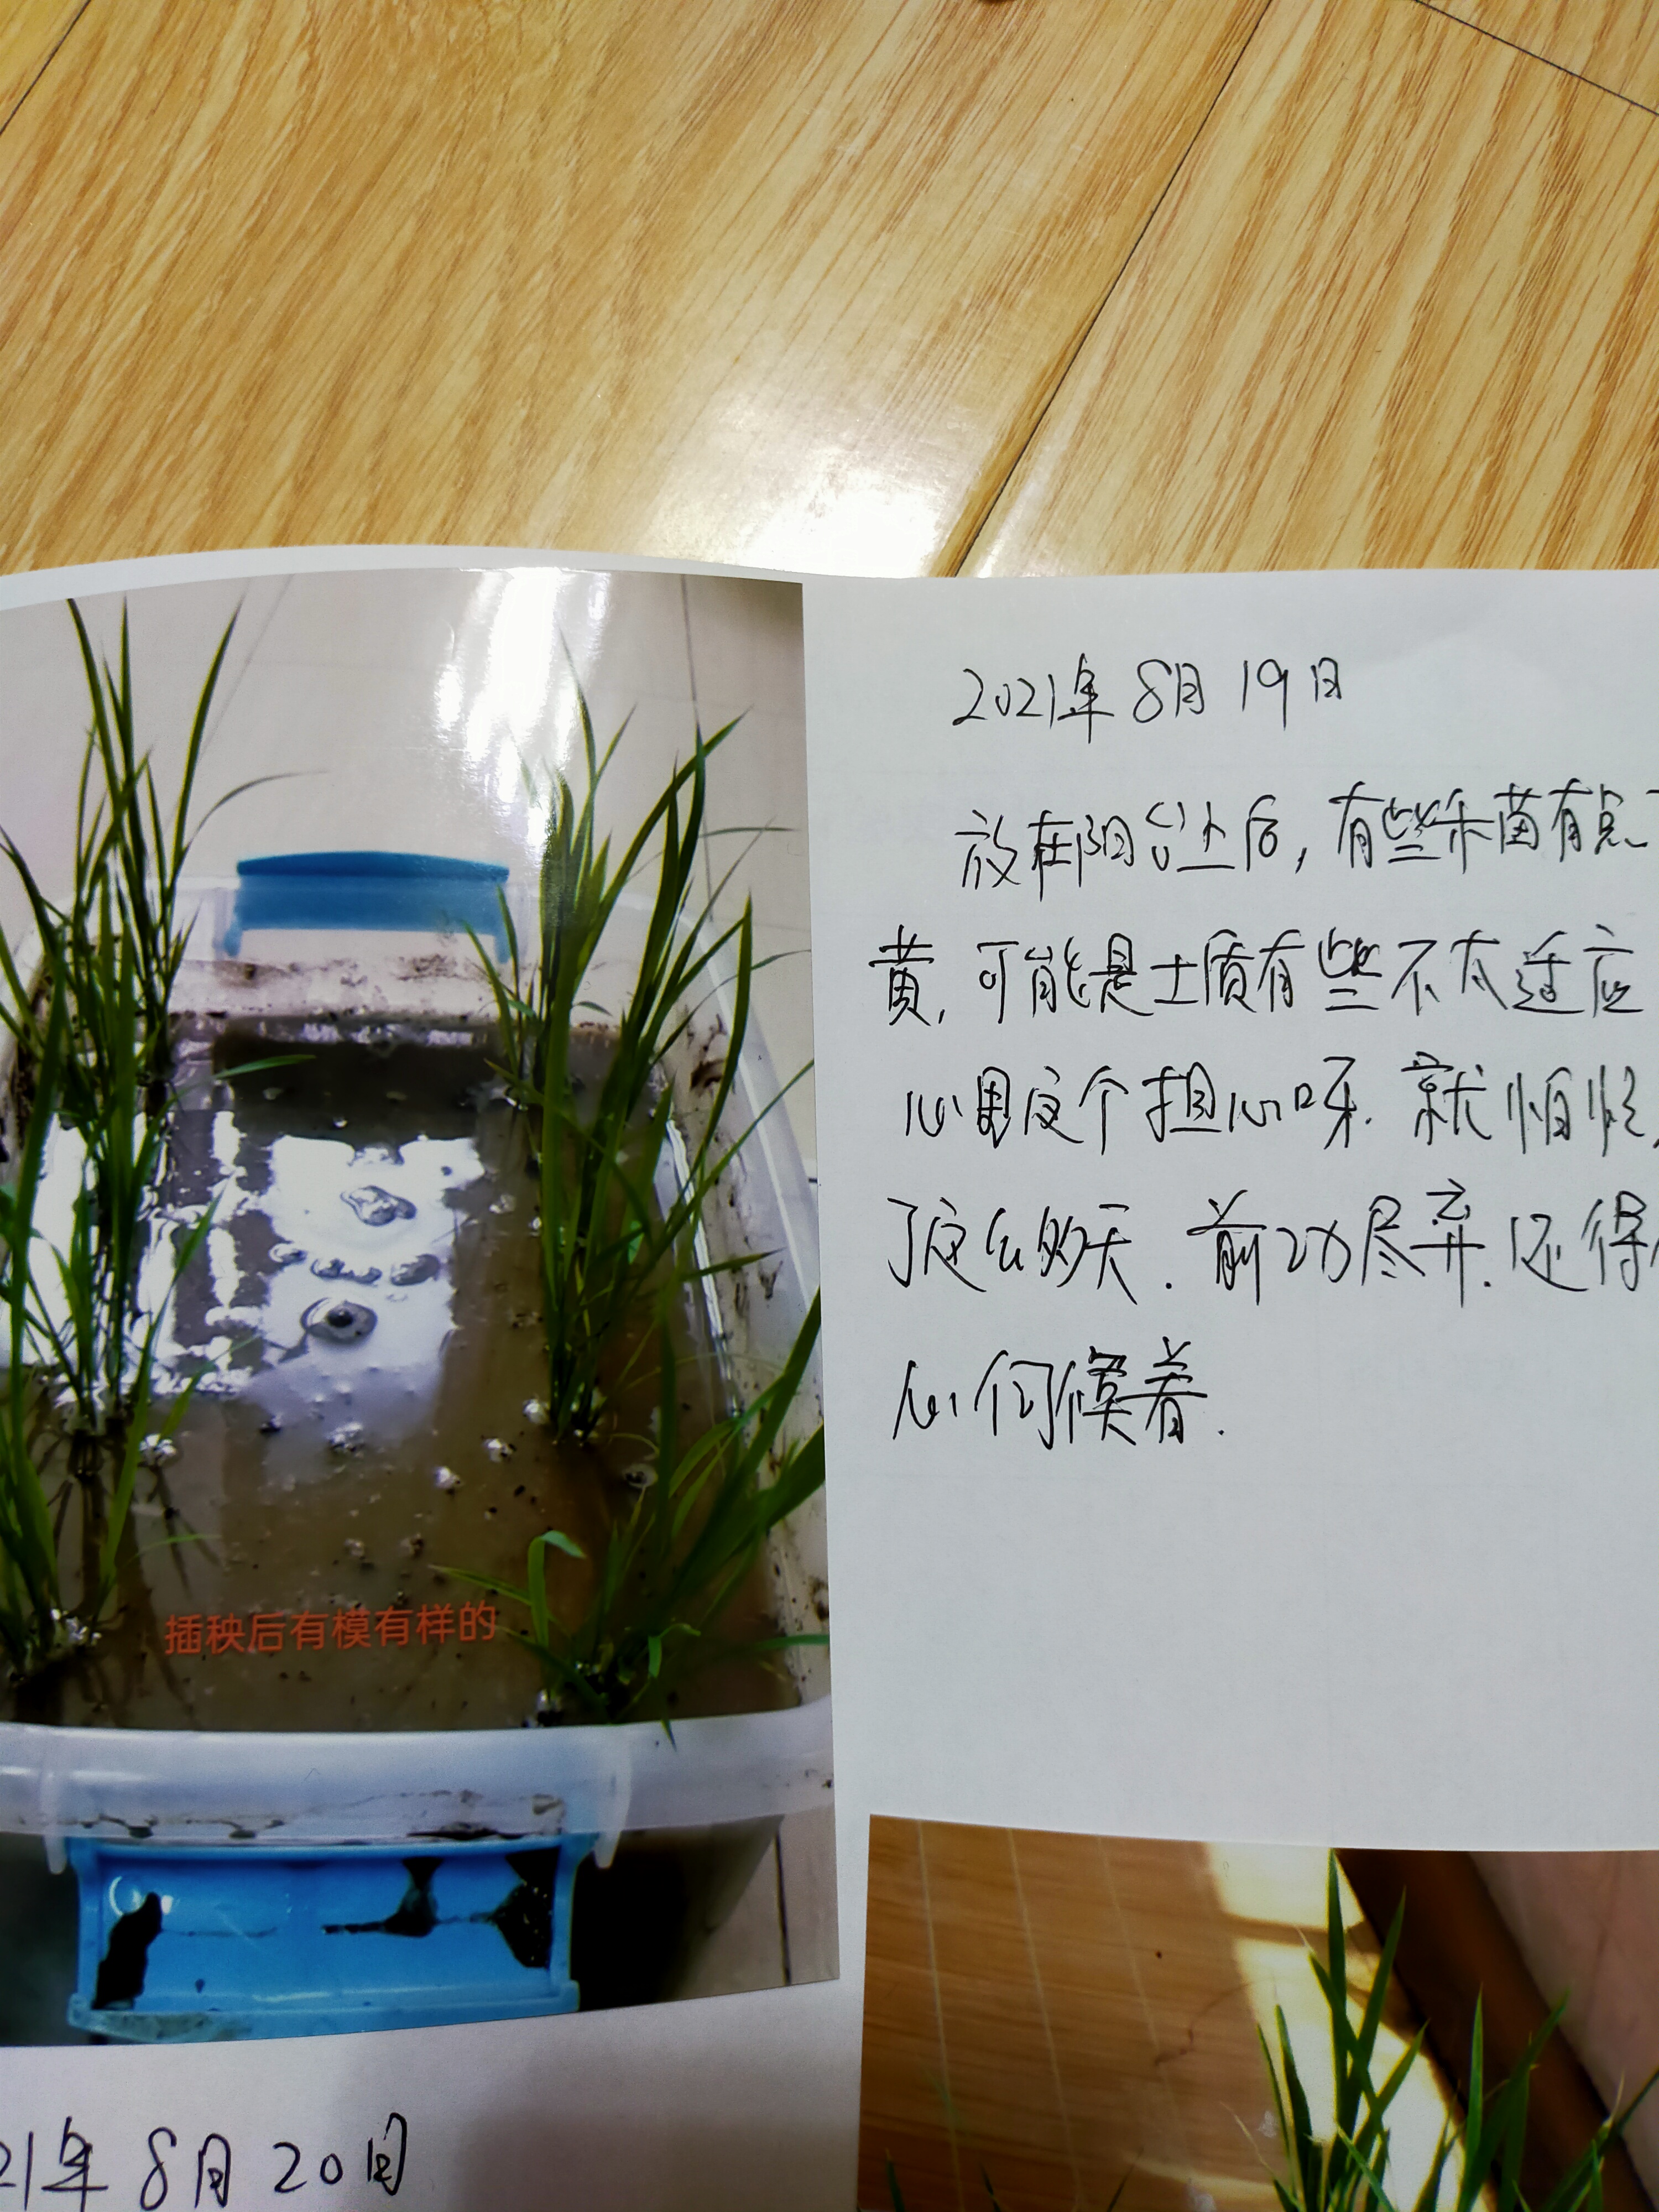 2021年8月19日
放在阳台上后,有些禾苗有点
黄,可能是土质有些不太适应
心里这个担心呀.就怕忙
了这么多天.前功尽弃.还得
心伺候着.
插秧后有模有样的
21年8月20日